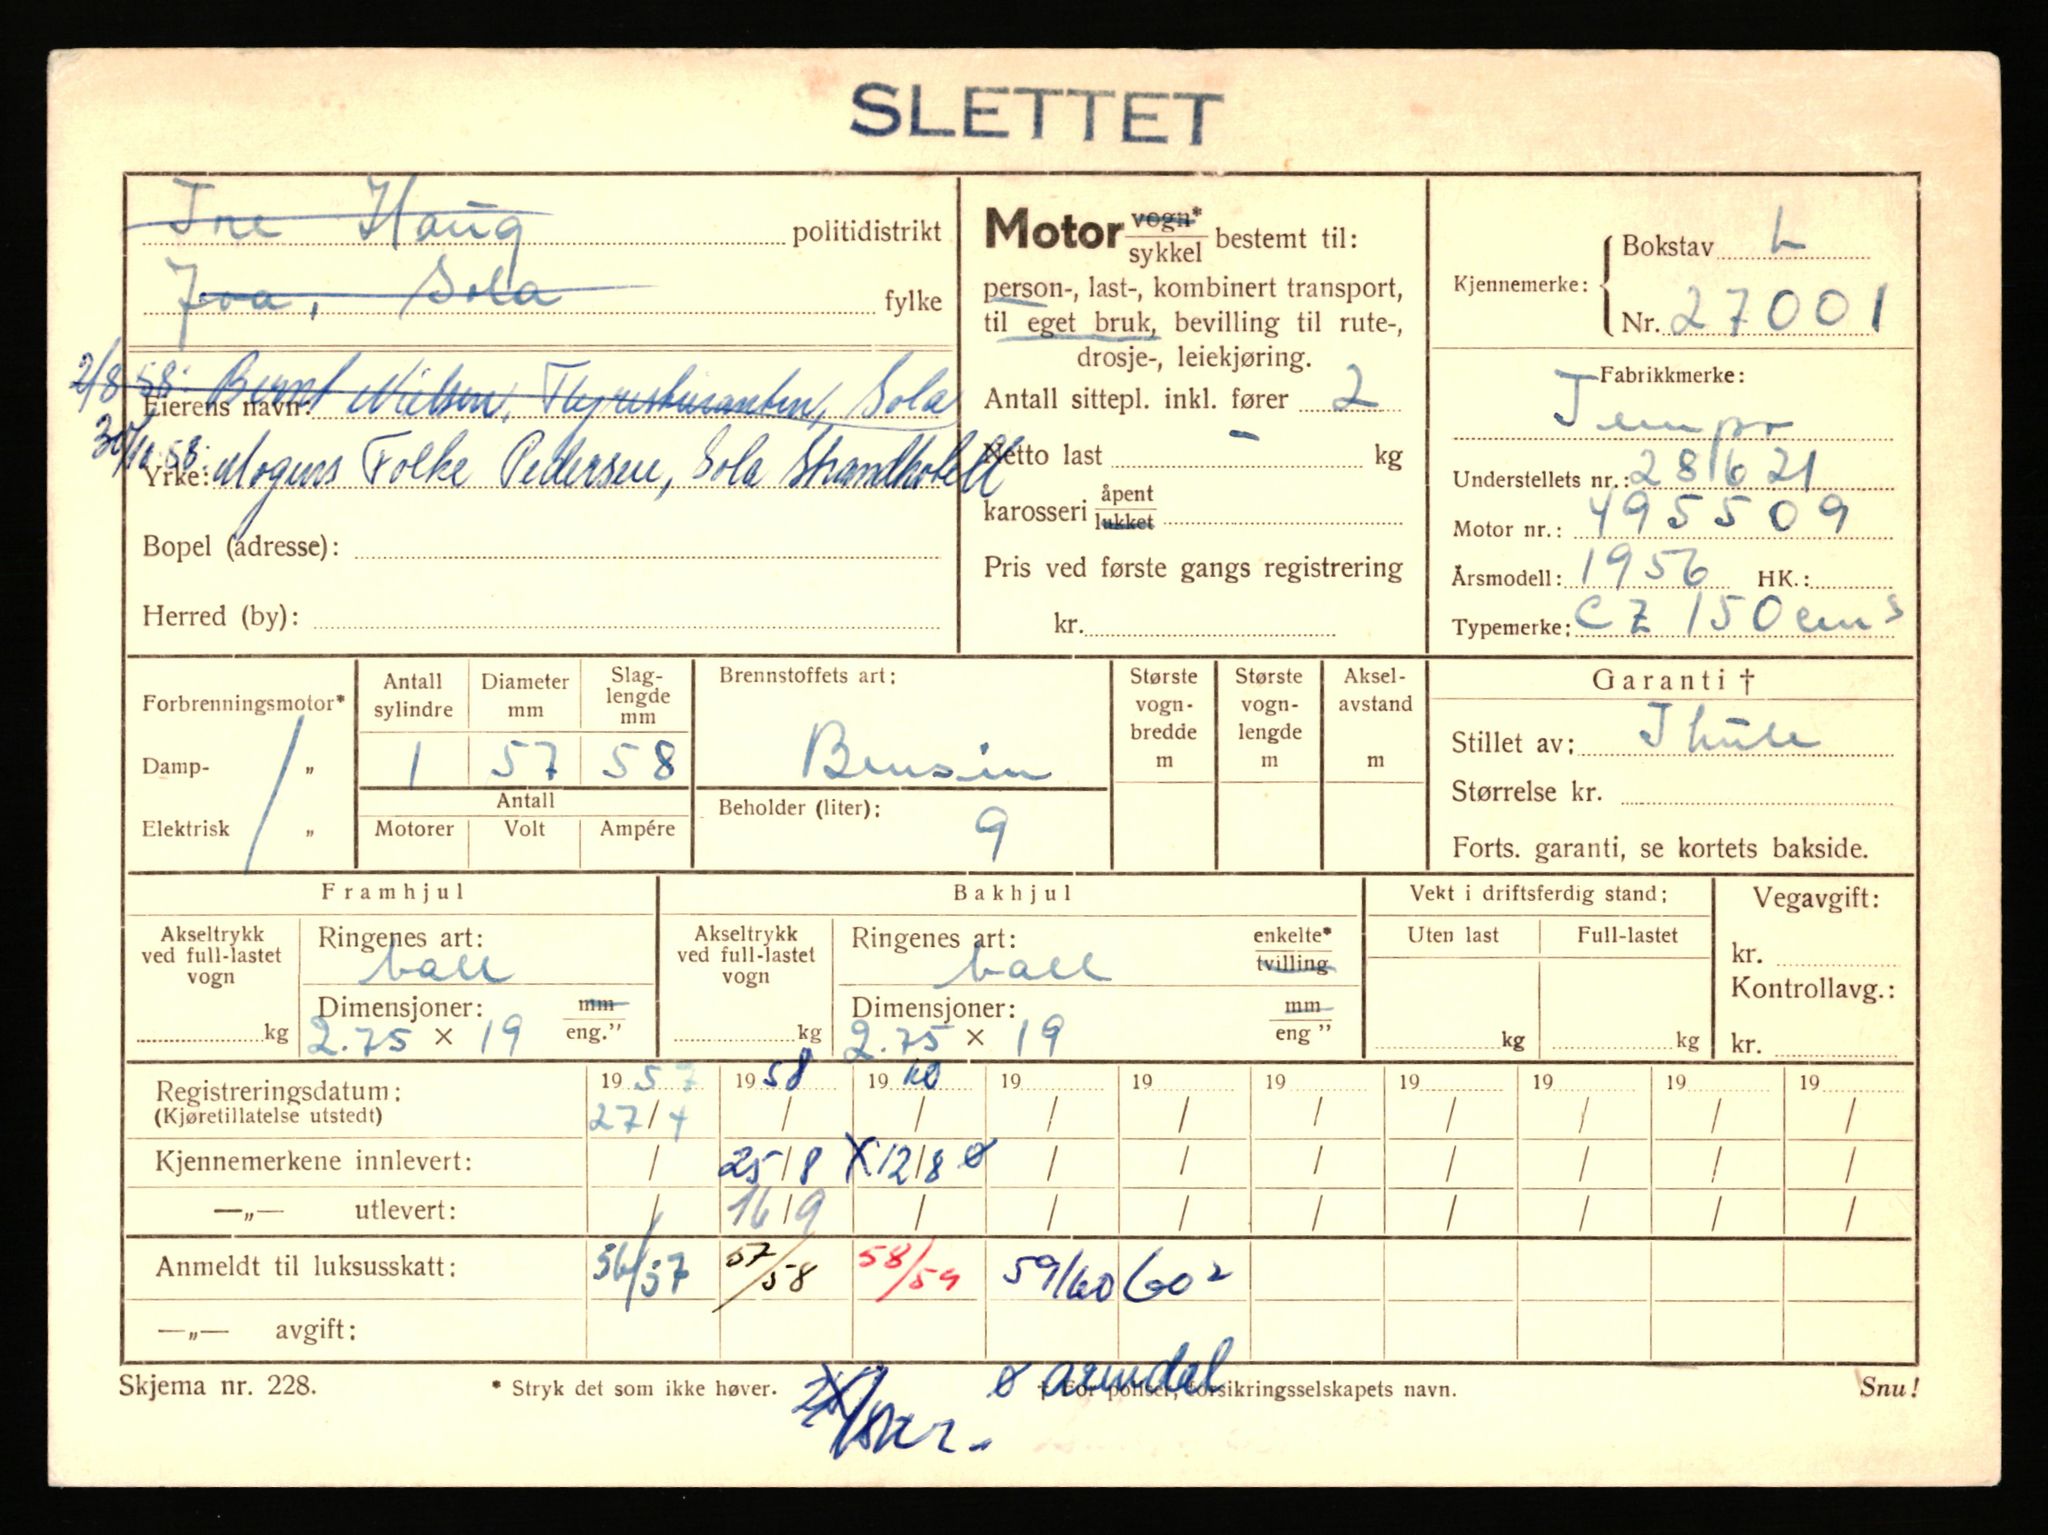 SLETTET
Tre Haug politidistrikt
Joa, Sola fylke
2/8 58: Bernt Nielsen, Sola
Eierens navn:
30/10 58:
Yrke: Mogens Folke Pedersen, Sola Strandhotell
Bopel (adresse):
Herred (by):
Motor vogn* / sykkel bestemt til:
person-, last-, kombinert transport,
til eget bruk, bevilling til rute-,
drosje-, leiekjøring.
Antall sittepl. inkl. fører 2
Netto last - kg
karosseri åpent / lukket
Pris ved første gangs registrering
kr.
Kjennemerke: Bokstav L
Nr. 27001
Fabrikkmerke:
Tempo
Understellets nr.: 281621
Motor nr.: 495509
Årsmodell: 1956 HK.:
Typemerke: CZ 150 cm3
Forbrenningsmotor*
Damp- „
Elektrisk „
Antall sylindre Diameter mm Slag-lengde mm
1 57 58
Antall
Motorer Volt Ampére
Brennstoffets art:
Bensin
Beholder (liter): 9
Største vogn-bredde m
Største vogn-lengde m
Aksel-avstand m
Garanti †
Stillet av: Thule
Størrelse kr.
Forts. garanti, se kortets bakside.
Framhjul
Akseltrykk ved full-lastet vogn kg
Ringenes art: ball
Dimensjoner: mm / eng."
2.75 x 19
Bakhjul
Akseltrykk ved full-lastet vogn kg
Ringenes art: ball enkelte* / tvilling
Dimensjoner: mm / eng "
2.75 x 19
Vekt i driftsferdig stand:
Uten last Full-lastet
kg kg
Vegavgift:
kr.
Kontrollavg.:
kr.
Registreringsdatum: 19 57 19 58 19 60 19 19 19 19 19 19 19
(Kjøretillatelse utstedt) 27/4 / / / / / / / / /
Kjennemerkene innlevert: / 25/8 X12/8 ø / / / / / / /
—„— utlevert: / 16/9 / / / / / / / /
Anmeldt til luksusskatt: 56/57 57/58 58/59 59/60 60²
—„— avgift:
Skjema nr. 228. * Stryk det som ikke høver. ø Arendal † For poliser, forsikringsselskapets navn. Snu!